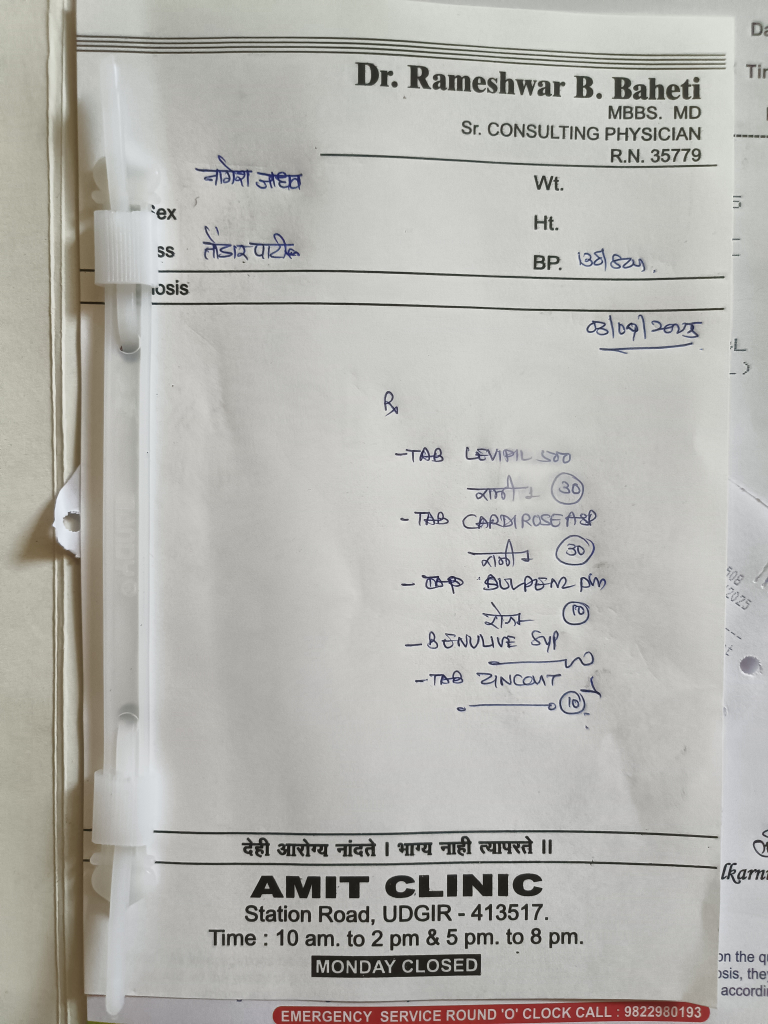 Dr. Rameshwar B. Baheti
MBBS. MD
Sr. CONSULTING PHYSICIAN
R.N. 35779
नागेश जाधव
Wt.
ex
Ht.
ss तोंडार पाटील
BP. 138/80
osis
03/09/2025
Rx
- TAB LEVIPIL 500
रात्री 1 (30)
- TAB CARDIROSE ASP
रात्री 1 (30)
- TAB
रोज (10)
- BENULIVE SYP
- TAB ZINCOVIT 1
(10)
देही आरोग्य नांदते । भाग्य नाही त्यापरते ॥
AMIT CLINIC
Station Road, UDGIR - 413517.
Time : 10 am. to 2 pm & 5 pm. to 8 pm.
MONDAY CLOSED
EMERGENCY SERVICE ROUND 'O' CLOCK CALL : 9822980193